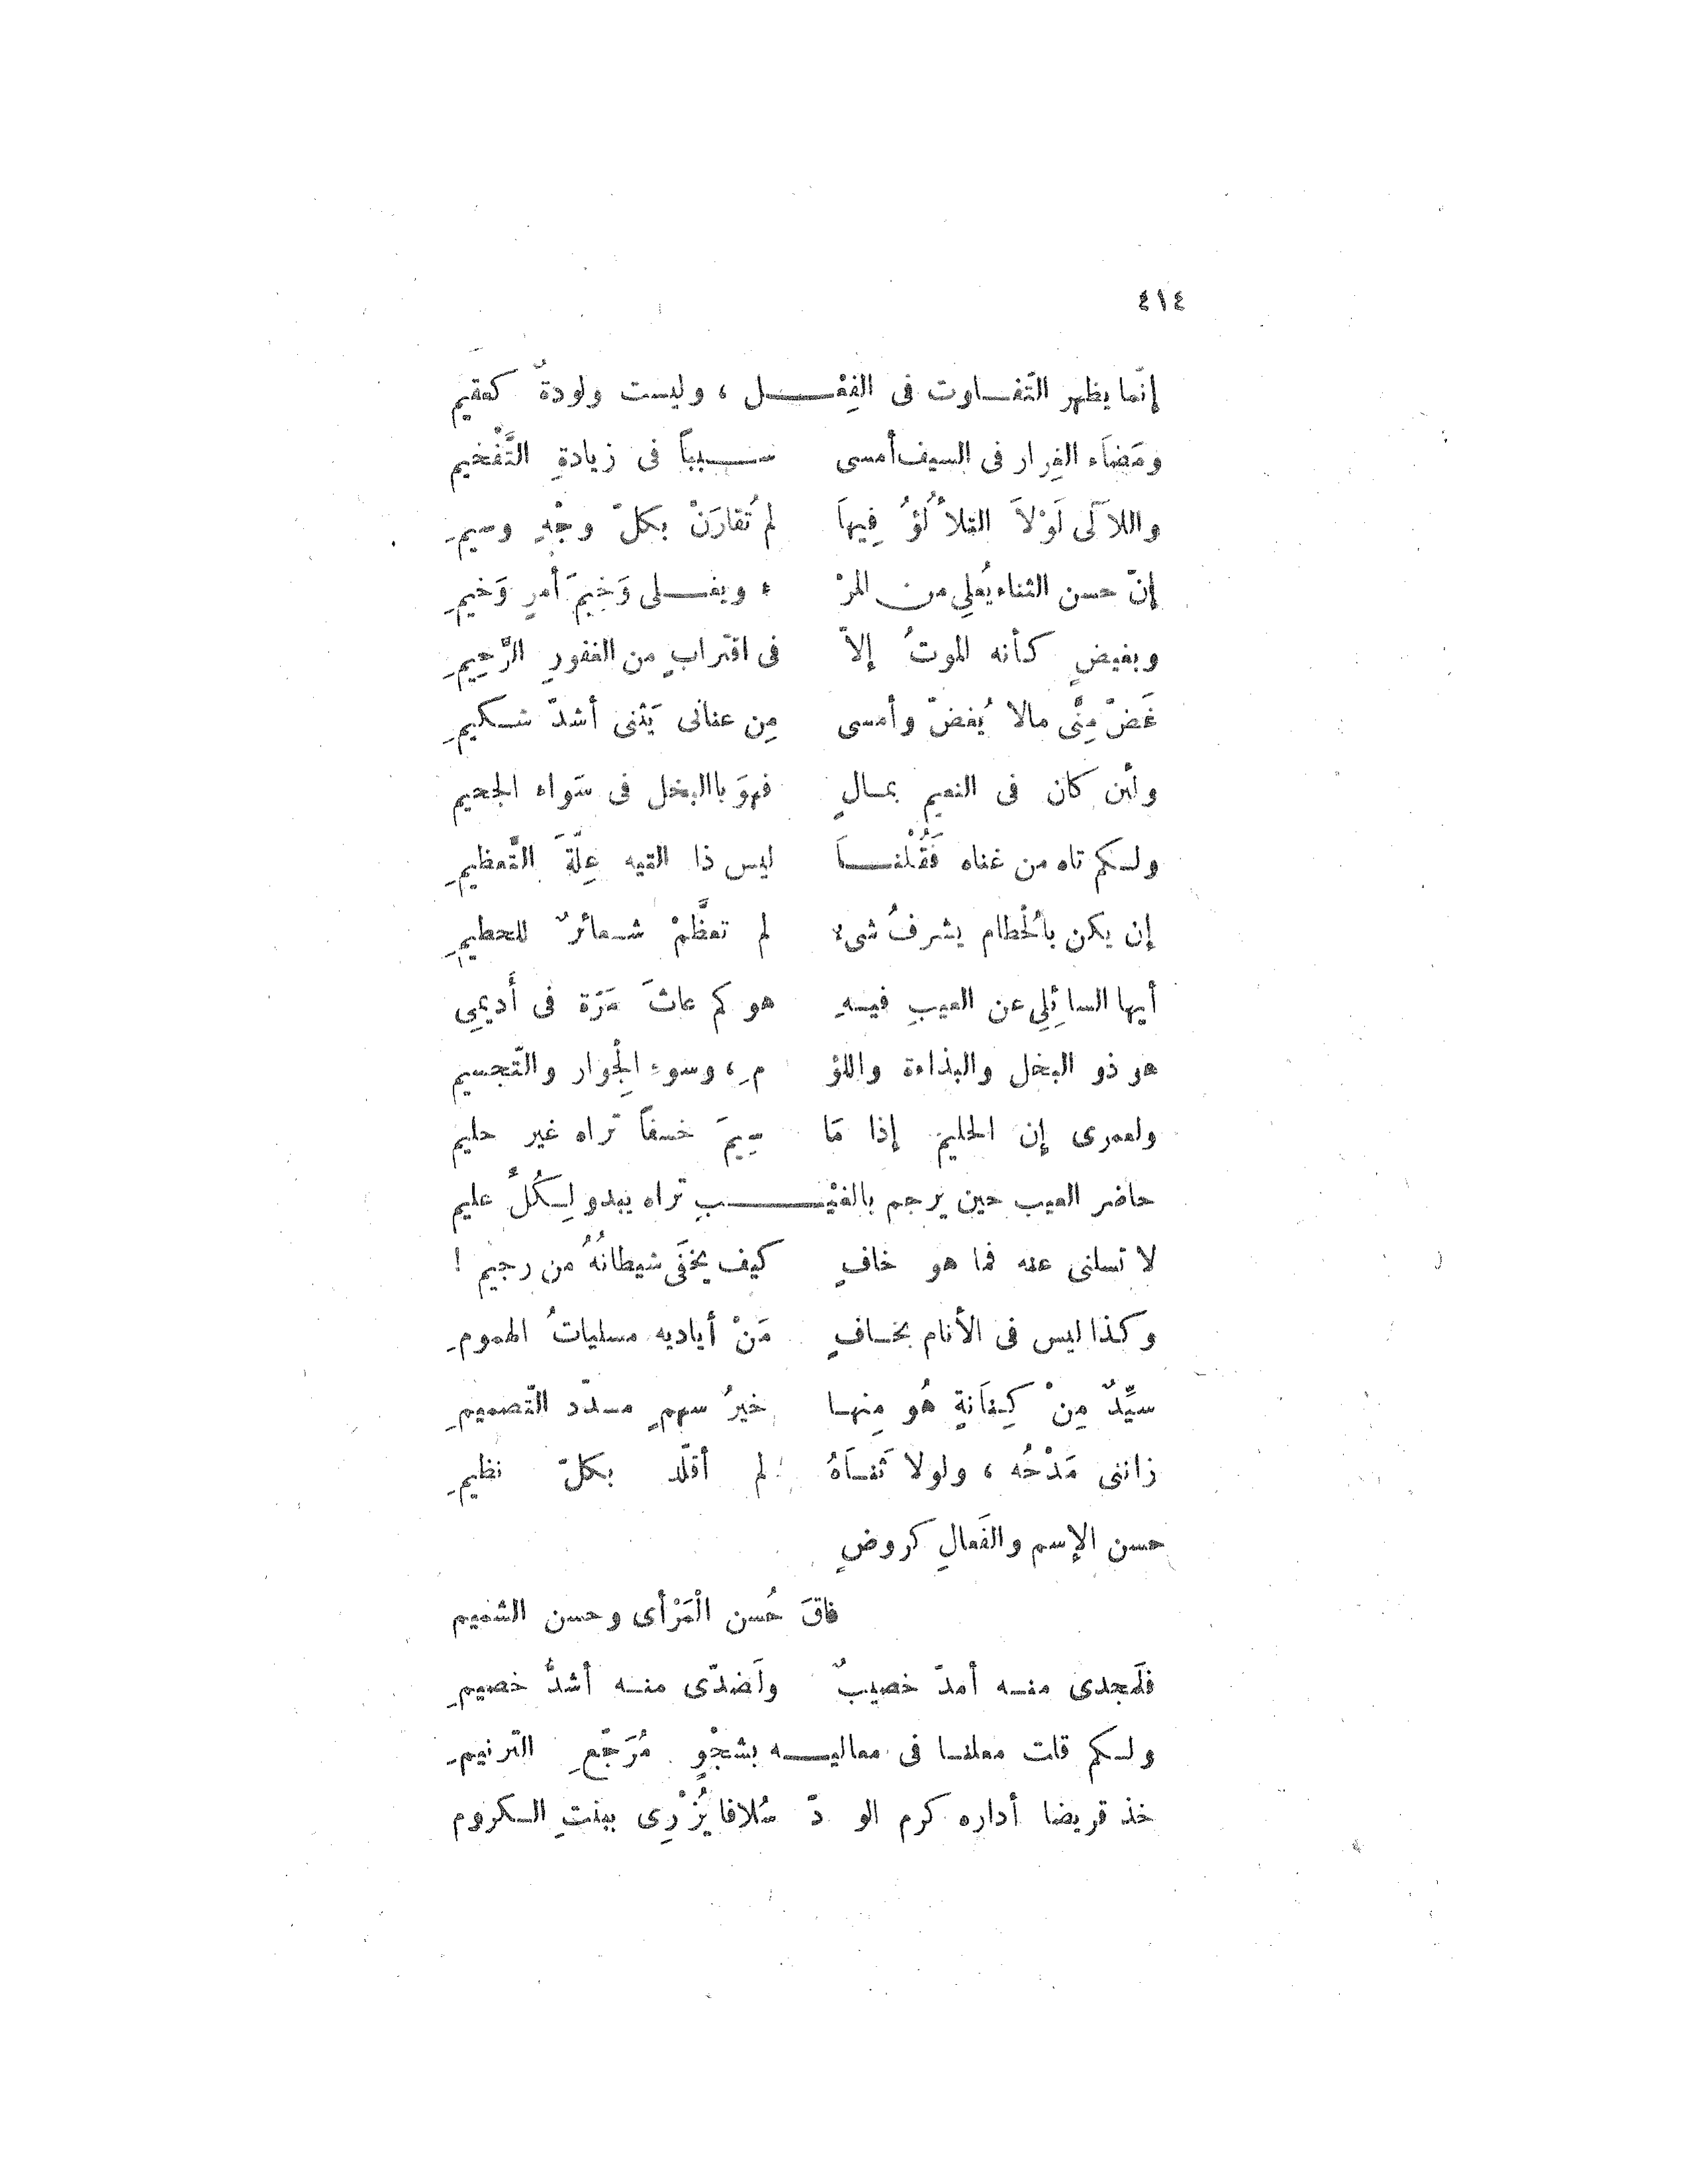 ٤١٤
إنّما يظهر التّفاوت فى الفِعْل ، وليست ولودةٌ كعقيم
ومَضاَء الغِرار فى السيف أمسى سبباً فى زيادةِ التَّفْخيم
واللآلى لَوْلاَ التلأْلُؤُ فِيهاَ لم تُقارَنْ بكلّ وجْهٍ وسيمِ
إنّ حسن الثناء يُعلِى من المرْ ء ويغلى وَخِيمَ أمرٍ وَخيمِ
وبغيضٍ كأنه الموتُ إلاّ فى اقترابٍ من الغفورِ الرَّحِيمِ
غَضّ مِنِّى مالا يُغضّ وأمسى مِن عنانى يَثْنى أشدّ شكيمِ
ولئن كان فى النعيم بمالٍ فهوَ باالبخل فى سَواء الجحيم
ولكم تاه من غناه فَقُلْناَ ليس ذا التيه عِلّةَ التَّعظيمِ
إن يكن بالُحْطام يشرفُ شىء لم تعظَّمْ شعائرٌ للحطيمِ
أيها السائِلِى عن العيبِ فيهِ هو كم عاثَ مَرّة فى أَديمِى
هو ذو البخل والبذاءة واللؤ مِ ، وسوءِ الْجِوار والتّجسيم
ولعمرى إن الحليم إذا مَا سِيمَ خسفاً تراه غير حليم
حاضر العيب حين يرجم بالغيْبِ تراه يبدو لِكُلِّ عليم
لا تسلنى عنه فما هو خافٍ كيف يخفَى شيطانُهُ من رجيم !
وكذا ليس فى الأنام بخافٍ مَنْ أياديه مسلياتُ الهمومِ
سيِّدٌ مِنْ كِنَانَةٍ هُو مِنها خيرُ سهمٍ مسدّد التّصميمِ
زاننى مَدْحُه ، ولولا ثَناَهُ لم أقلّد بكلّ نظيمِ
حسن الإسم والفَعالِ كروضٍ
فاقَ حُسن الْمَرْأى وحسن الشميم
فلَمجدى منه أمدّ خصيبٌ ولَضدّى منه أشدُّ خصيمِ
ولكم قلت معلنا فى معاليه بشجْوٍ مُرَجَّعِ الترنيمِ
خذ قريضا أداره كرم الو دّ سُلافا يُزْرِى ببنتِ الكروم